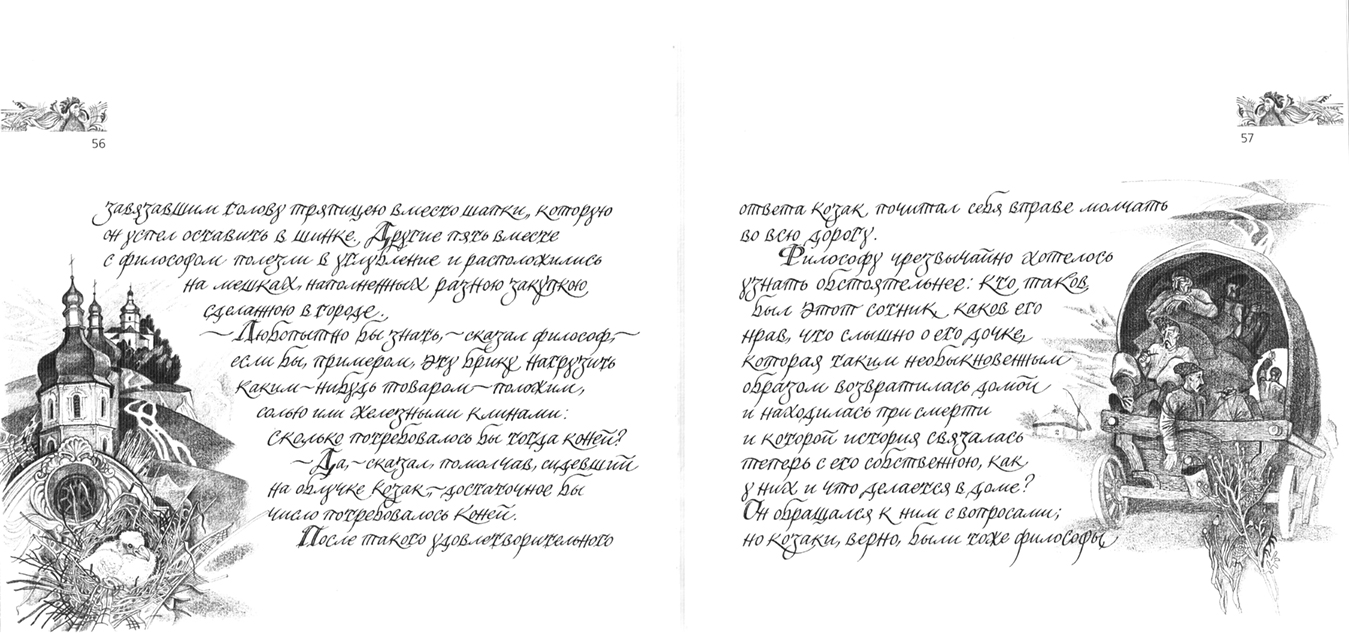 56
завязавшим голову тряпицею вместо шапки, которую
он успел оставить в шинке. Другие пять вместе
с философом полезли в углубление и расположились
на мешках, наполненных разною закупкою,
сделанною в городе.
– Любопытно бы знать, – сказал философ, –
если бы, примером, эту брику нагрузить
каким-нибудь товаром – положим,
солью или железными клинами:
сколько потребовалось бы тогда коней?
– Да, – сказал, помолчав, сидевший
на облучке козак, – достаточное бы
число потребовалось коней.
После такого удовлетворительного
57
ответа козак почитал себя вправе молчать
во всю дорогу.
Философу чрезвычайно хотелось
узнать обстоятельнее: кто таков
был этот сотник, каков его
нрав, что слышно о его дочке,
которая таким необыкновенным
образом возвратилась домой
и находилась при смерти
и которой история связалась
теперь с его собственною, как
у них и что делается в доме?
Он обращался к ним с вопросами;
но козаки, верно, были тоже философы,